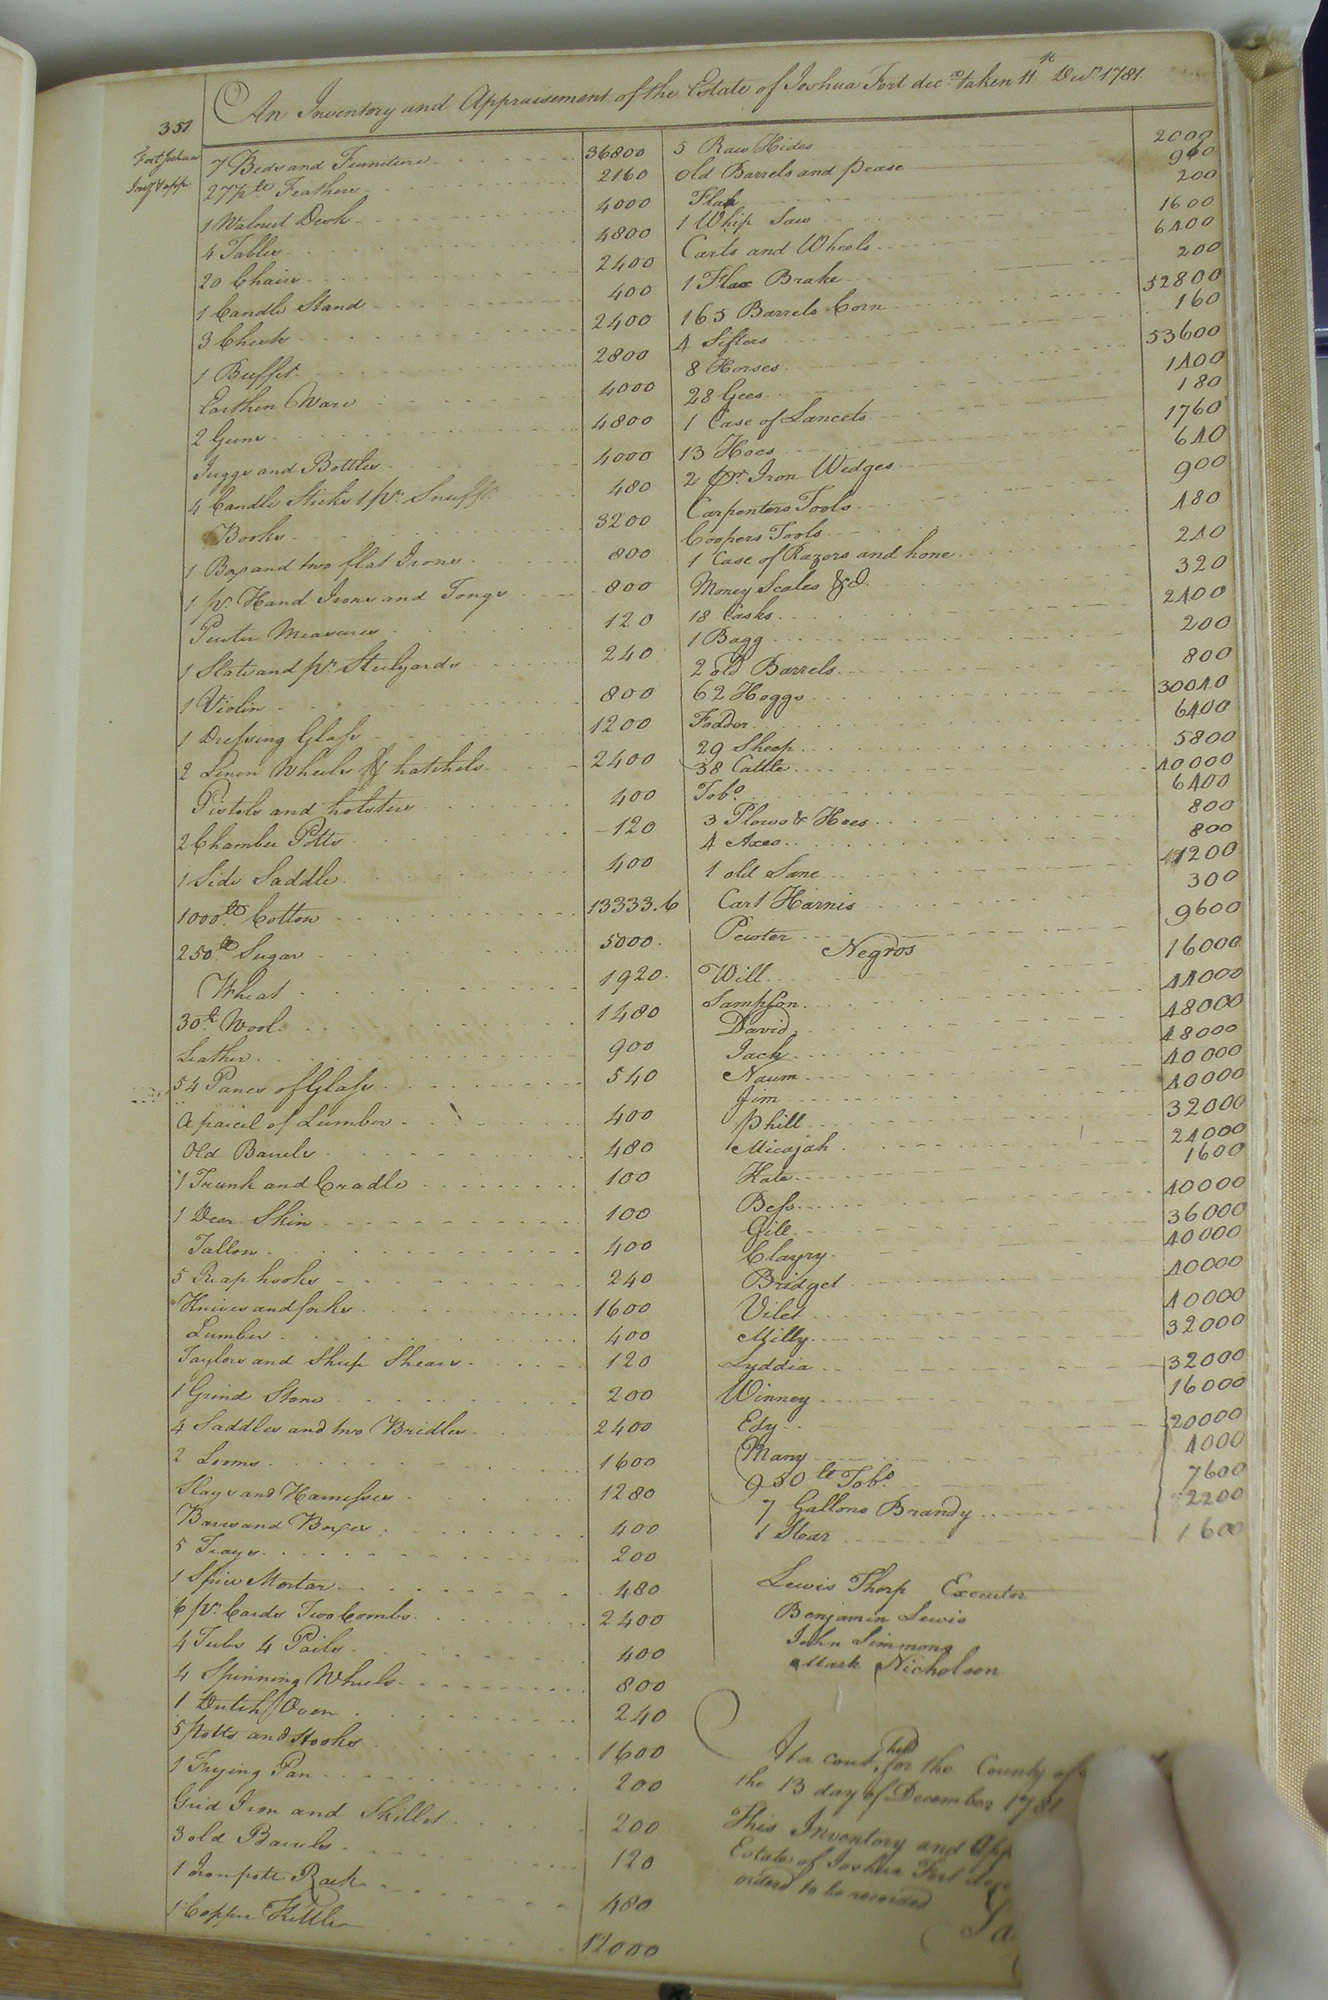 An Inventory and Appraisement of the Estate of Joshua Fort decd taken 11th Decr 1781
351
Fort Joshua
Invy & app
7 Beds and Furniture 36800
27 lb Feathers 2160
1 Walnut Desk 4000
4 Tables 4800
20 Chairs 2400
1 Candle Stand 400
3 Chests 2400
1 Buffet 2800
Earthen Ware 4000
2 Guns 4800
Juggs and Bottles 4000
4 Candle Sticks 1 pr. Snuffs 480
Books 3200
1 Box and two flat Irons 800
1 pr. Hand Irons and Tongs 800
Pewter Measures 120
1 Slate and pr Steelyards 240
1 Violin 800
1 Dressing Glass 1200
2 Linen Wheels & hatchels 2400
Pistols and holsters 400
2 Chamber Potts 120
1 Side Saddle 400
1000 lb Cotton 13333.6
250 lb Sugar 5000
Wheat 1920
30 lb Wool 1480
Leather 900
54 Panes of Glass 540
a parcel of Lumber 400
Old Barrels 480
1 Trunk and Cradle 100
1 Deer Skin 100
Tallow 400
5 Reap hooks 240
Knives and forks 1600
Lumber 400
Taylors and Sheep Shears 120
1 Grind Stone 200
4 Saddles and two Bridles 2400
2 Looms 1600
Slays and Harnesses 1280
Bars and Boxes 400
5 Trays 200
1 Spice Mortar 480
6 pr. Cards Two Combs 2400
4 Tubs 4 Pails 400
4 Spinning Wheels 800
1 Dutch Oven 240
5 Potts and Hooks 1600
1 Frying Pan 200
Grid Iron and Skillet 200
3 old Barrels 120
1 Iron pott Rack 480
1 Copper Kettle 12000
5 Raw Hides 2000
Old Barrels and pease 960
Flax 200
1 Whip Saw 1600
Carts and Wheels 6400
1 Flax Brake 200
165 Barrels Corn 52800
4 Sifters 160
8 Horses 53600
28 Gees 1400
1 Case of Lancets 180
13 Hoes 1760
2 pr. Iron Wedges 640
Carpenters Tools 900
Coopers Tools 480
1 Case of Razors and hone 240
Money Scales &c. 320
18 Casks 2400
1 Bagg 200
2 old Barrels 800
62 Hoggs 30040
Fodder 6400
29 Sheep 5800
38 Cattle 40000
Tobo. 6400
3 Plows & Hoes 800
4 Axes 800
1 old Sane 1200
Cart Harnis 300
Pewter 9600
Negros
Will 16000
Sampson 44000
David 48000
Jack 48000
Naum 40000
Jim 40000
Phill 32000
Micajah 24000
Kate 1600
Bess 40000
Gill 36000
Clayry 40000
Bridget 40000
Vilet 40000
Milly 32000
Lyddia 32000
Winney 16000
Edy 20000
Many 4000
930 lb Tobo. 7600
7 Gallons Brandy 2200
1 Stear 1600
Lewis Thorp Executor
Benjamin Lewis
John Simmons
Mark Nicholson
At a court held for the County of
the 13 day of December 1781
This Inventory and App
Estate of Joshua Fort dec
orderd to be recorded